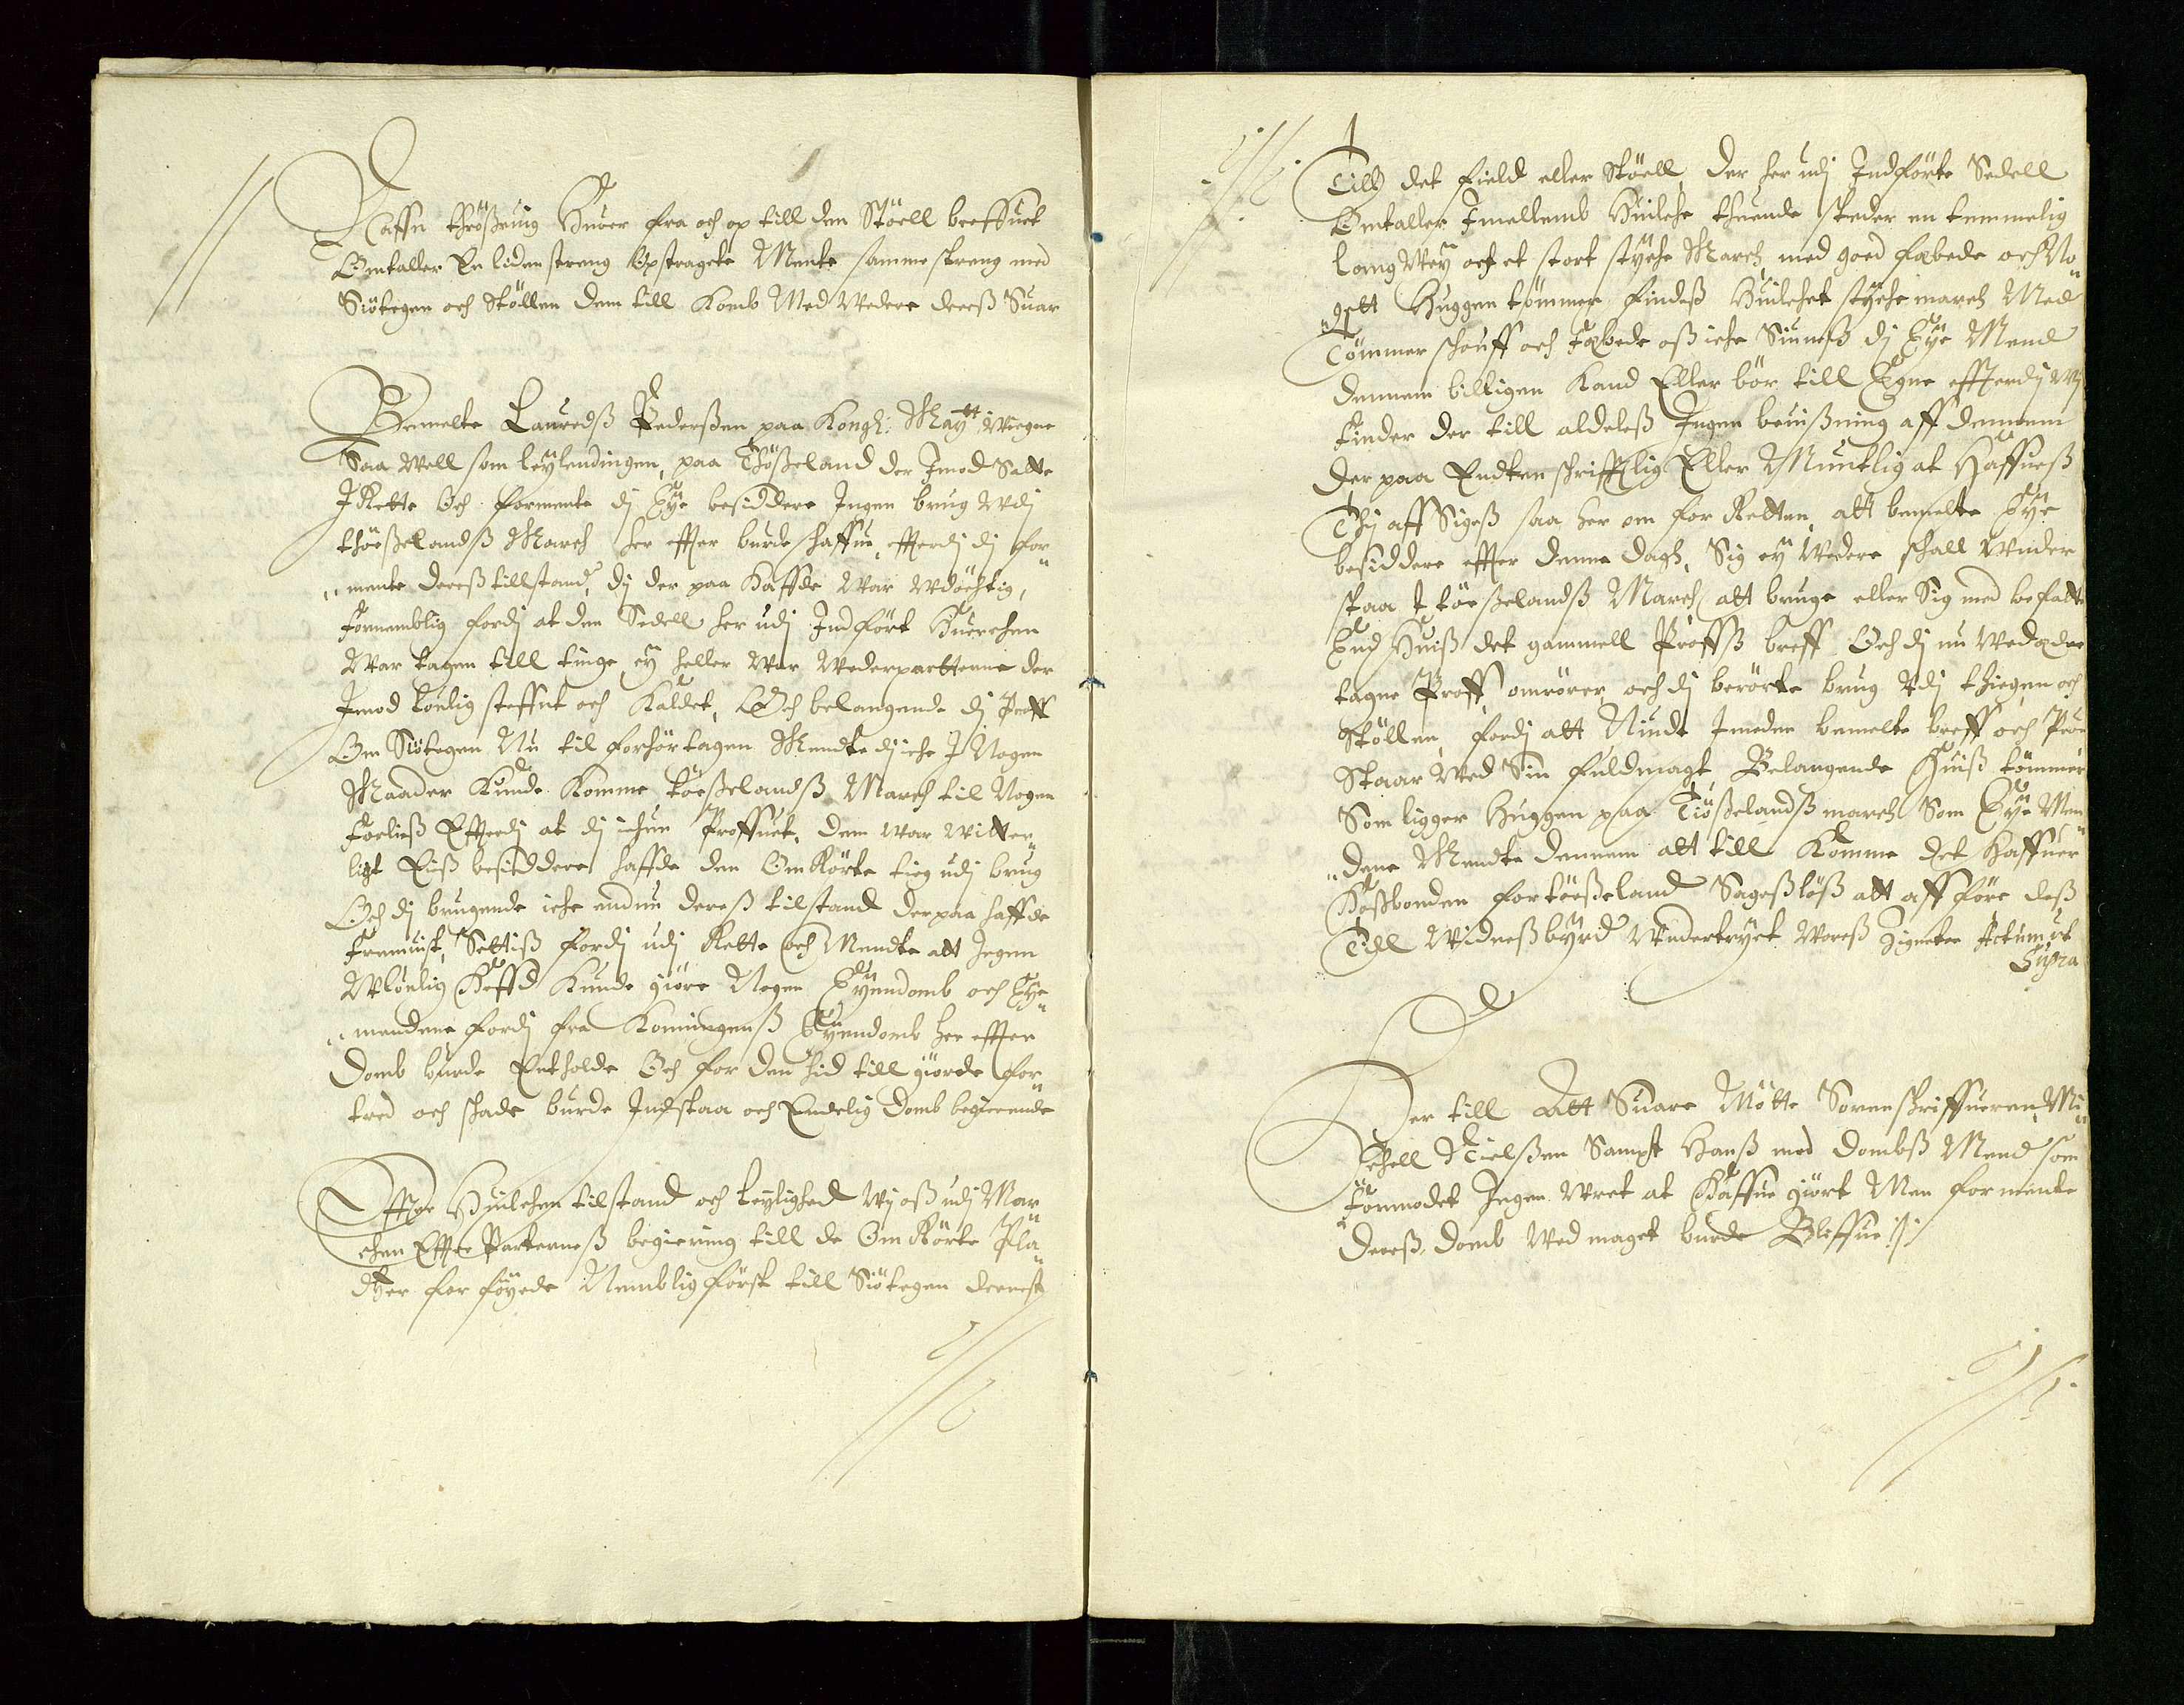 Haffu thrößenig Huor fra och op till den Stöell breffuet
Omtaller En liden streng Opstragte Mente samme streng med
Siötegen och Stöllen dem till Komb Med Videre dereß Suar
Bemelte Lauredß Pederßen paa Kongl: Maytt Wegne
Saa Well som leylendingen, paa Thößeland der Imod Satte
I Rette Och formente di Eye besiddere Ingen brug Wdj
thöeßelandß March her effter burde haffue, effterdj di for
mente dereß tillstand, di der paa Haffde War Wdöchtig,
fornemblig fordj at den Sedell her udj Indfört Huerchen
War tagen till tinge ey heller War Wederpartterne der
Imod louglig steffnt och Kaldet, Och belangende di Proff
Om Siötegen Nu til forhör tagen Mendte di iche I Nogen
Maader Kunde Komme töeßelandß March til Nogen
forließ Effterdj at di ichun Proffuet, dem War Witter
ligt Eiß besiddere haffde den Omrörte tieg udj brug
Och di brugende iche endnu dereß tilstand der paa haffde
fremuist, Settiß fordj udj Rette och Mendte att Ingen
Wlouglig Heffd Kunde giöre Nogen Eyendomb och Eye
mendene fordj fra Konningenß Eyendomb her effter
Domb burde Entholde Och for den hid till giorde for
tred och schade burde Indstaa och Endelig Domb begierende
Effter Huilchen tilstand och leylighed Wj oß udj Mar
chen Effter Parterneß begiering till de Omrörte Pla
dtzer for föyede Nemblig först till Siötegen dernest
Till det field eller Stöell, der her udj Indförte Sedell
Omtaller Imellemb Huilche thuende steder en temmelig
lang Wey och et stort styche March med goed fæbede och No
gett Huggen tömmer findeß Huilchet styche march Med
Tömmer schouff och Fæbede oß iche Siuneß di Eye Mend
dennem billigen Kand Eller bör till Egne effterdj Wj
finder der till aldeleß Ingen beuißning aff dennem
der paa Endten schrifftlig Eller Muntlig at Haffueß
Thj aff Sigeß saa her om for Retten, att bemelte Eye
besiddere effter denne dagh, Sig ey Wedere schall Wnder
staa I töeßelandß March att bruge eller Sig med befatte
End Huiß det gammell Proffß breff Och di nu Wedædre
tagne Proff, omrörer, och di berörte brug Vdj thiegen och
Stöllen, fordj att Niude Imeden bemelte breff och Prou
Staar Wed Sin fuldmagt Belangende Huiß tömmer
Som ligger Huggen paa Tiößelandß march Som Eye Men
dene Mendte dennem att till Komme det Haffuer
Hoßbonden for töeßeland Sageßlöß att aff före deß
Till Widneßbyrd Vndertryct Woreß Zigneter Actum ut
Supra
Der till Att Suare Mötte Sorenschriffueren, Mi
chell Nielßen Sampt Hanß med dombß Mend som
formodet Ingen Wret at Haffue giört Men formente
Dereß domb Wed magt burde Bliffue